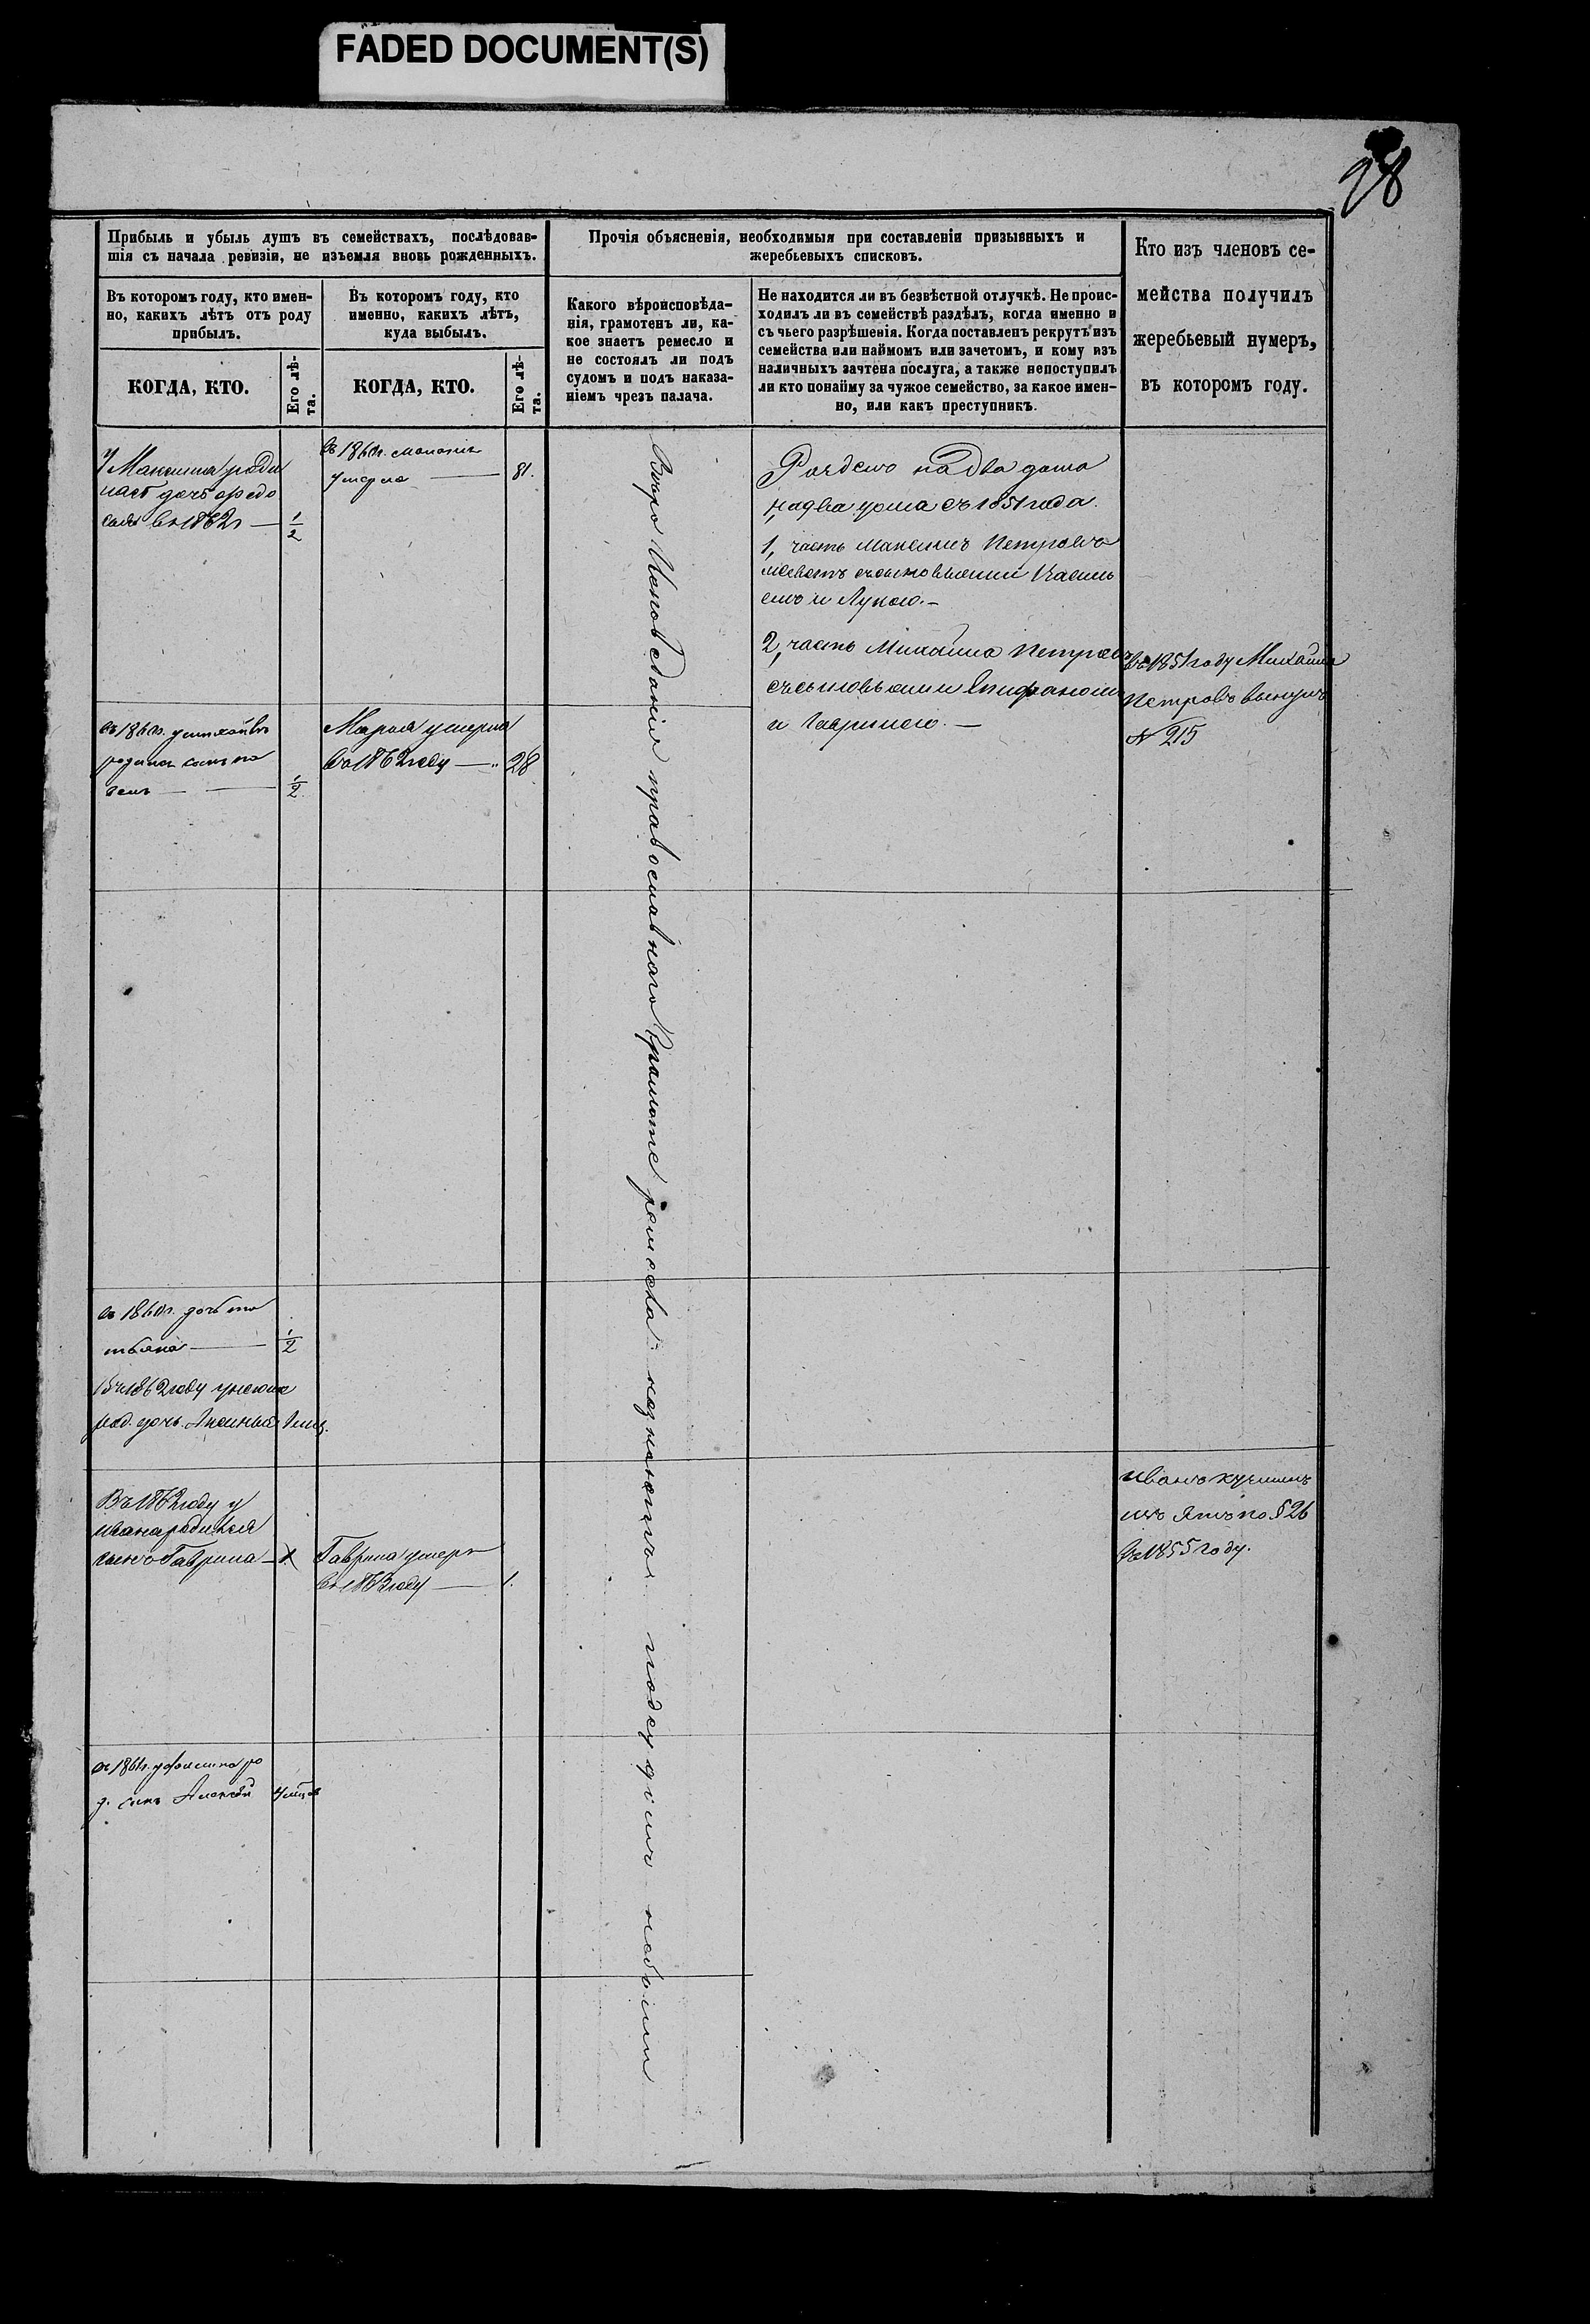 FADED DOCUMENT(S)
28
Прибыль и убыль душъ въ семействахъ, послѣдовав-
шія съ начала ревизіи, не изъемля вновь рожденныхъ.
Въ которомъ году, кто имен-
но, какихъ лѣтъ отъ роду
прибылъ.
КОГДА, КТО.
Его лѣ-
та.
Въ которомъ году, кто
именно, какихъ лѣтъ,
куда выбылъ.
КОГДА, КТО.
Его лѣ-
та.
Прочія объясненія, необходимыя при составленіи призывныхъ и
жеребьевыхъ списковъ.
Какого вѣроисповѣда-
нія, грамотенъ ли, ка-
кое знаетъ ремесло и
не состоялъ ли подъ
судомъ и подъ наказа-
ніемъ чрезъ палача.
Не находится ли въ безвѣстной отлучкѣ. Не проис-
ходилъ ли въ семействѣ раздѣлъ, когда именно и
съ чьего разрѣшенія. Когда поставленъ рекрутъ изъ
семейства или наймомъ или зачетомъ, и кому изъ
наличныхъ зачтена послуга, а также непоступилъ
ли кто понайму за чужое семейство, за какое имен-
но, или какъ преступникъ.
Кто изъ членовъ се-
мейства получилъ
жеребьевый нумеръ,
въ которомъ году.
У Максима роди
лась дочь Ѳедо
въ 1862г — 1/2
умерла — 81.
въ
родился сынъ
1/2
Марья умерла
въ 1862 году — 28
Вѣро Исповеданія православнаго грамоте ремесла незнаютъ подсудимъ небыли
на два дома
на два дома съ 1851 года.
1, часть Максимъ Петровъ
съ сыновьями
и Лукою.—
2, часть Михаила Петровъ
съ сыновьями Епифаномъ
и Гавриломъ.—
въ 1851 году Михайла
Петровъ вынулъ
№ 215
дочь та
тьяна — 1/2
Въ 1862 году
род. дочь 1 мес.
Въ 1862 году у
ивана родился
сынъ Гаврила — 1.
Гаврила умеръ
въ 1863 году — 1.
Иванъ
по § 26
въ 1855 году.
ро
д. сынъ Алексѣй